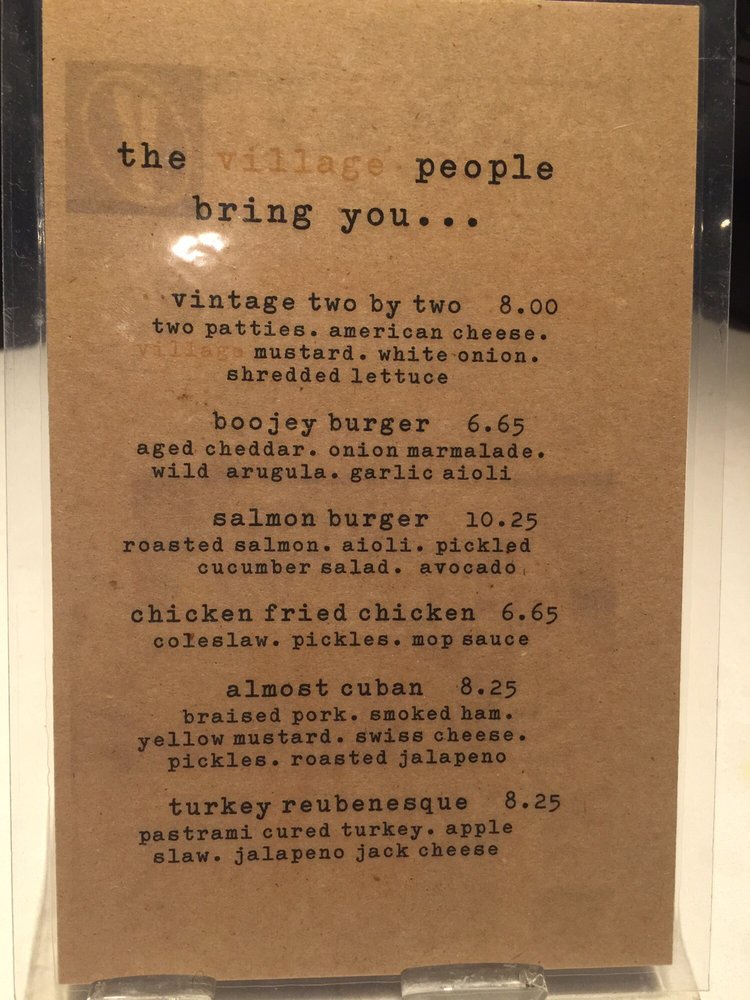 the village people
bring you...
vintage two by two 8.00
two patties. american cheese.
village mustard. white onion.
shredded lettuce
boojey burger 6.65
aged cheddar. onion marmalade.
wild arugula. garlic aioli
salmon burger 10.25
roasted salmon. aioli. pickled
cucumber salad. avocado
chicken fried chicken 6.65
coleslaw. pickles. mop sauce
almost cuban 8.25
braised pork. smoked ham.
yellow mustard. swiss cheese.
pickles. roasted jalapeno
turkey reubenesque 8.25
pastrami cured turkey. apple
slaw. jalapeno jack cheese